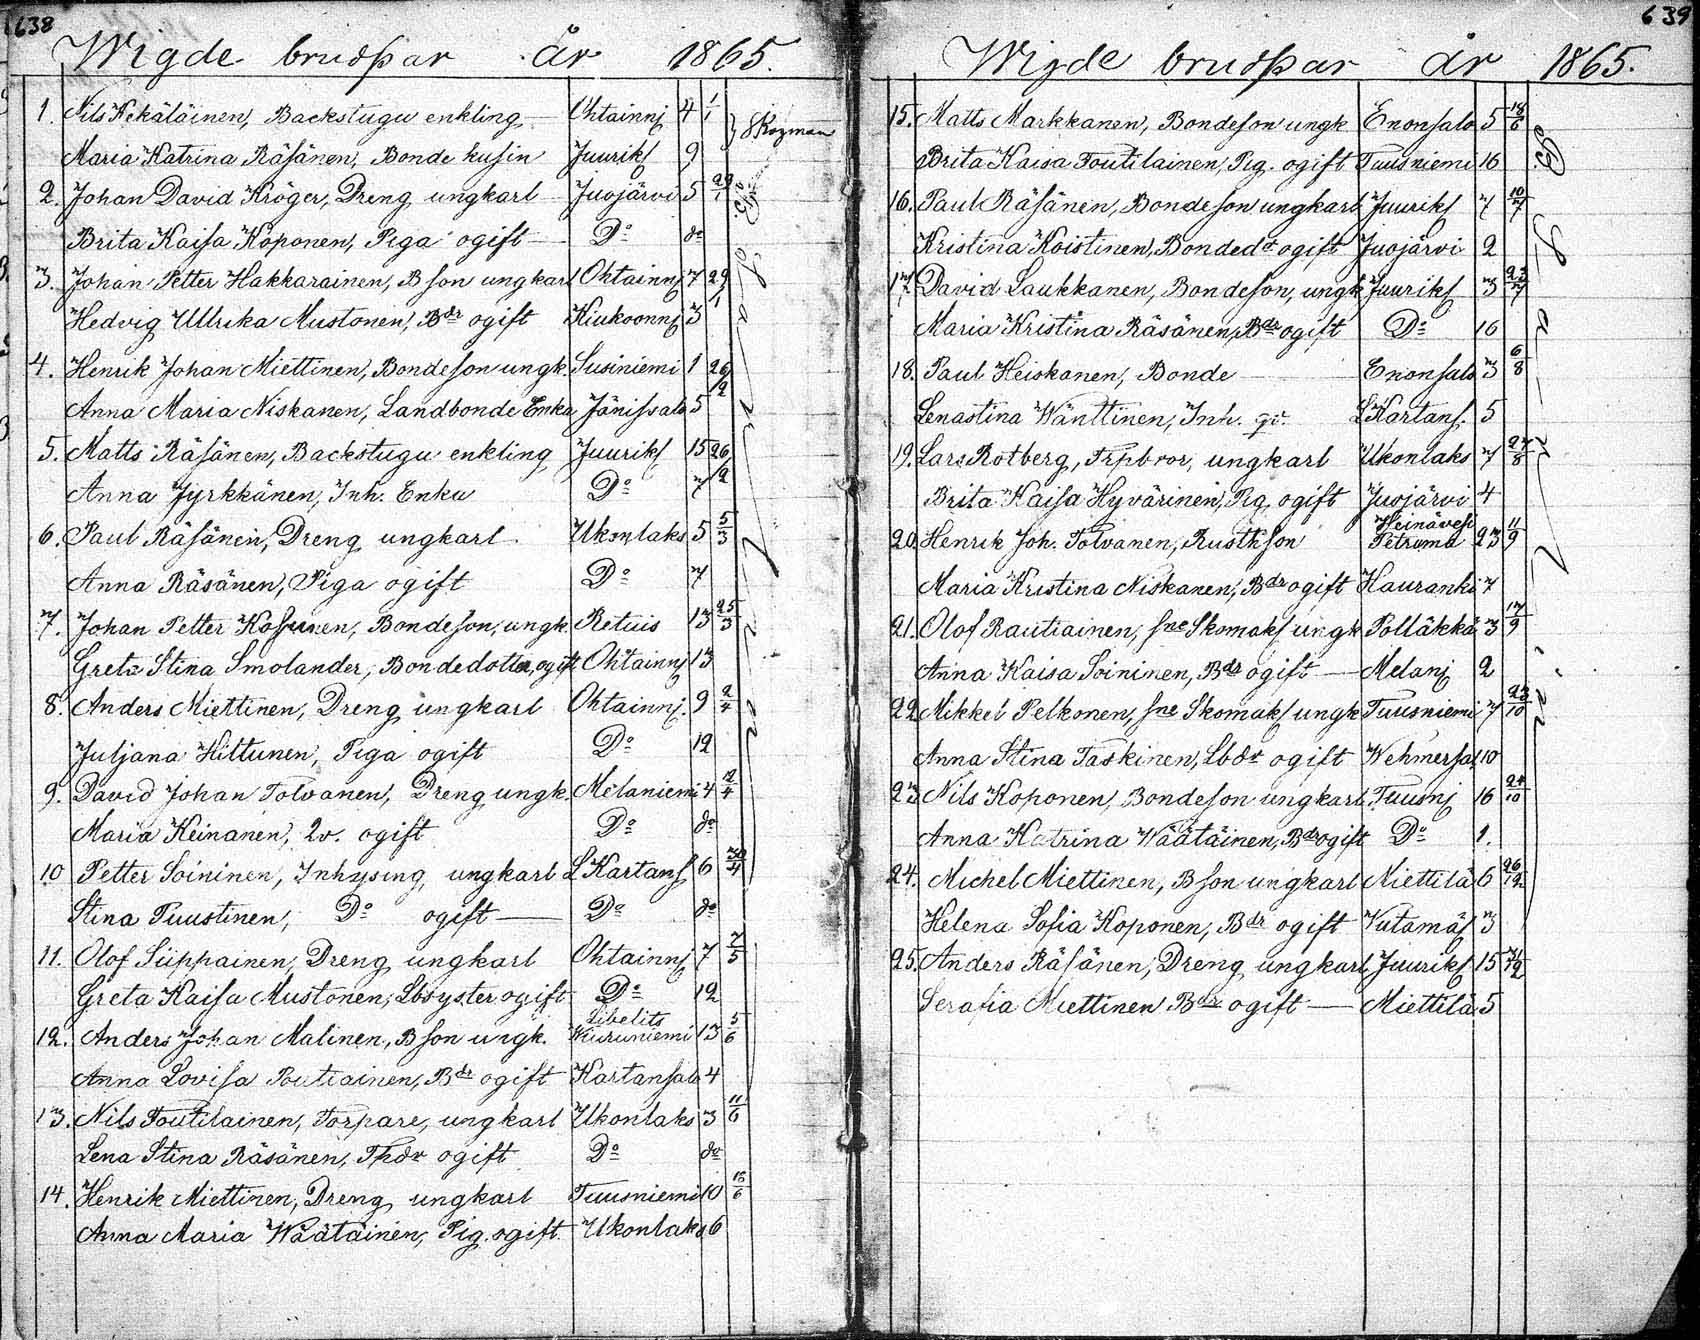 638
Wigde brudpar år 1865.
1. Nils Kekäläinen, Backstugu enkling Ohtainnj 4 1/1
Maria Katrina Räsänen, Bonde kusin Juuriks 9
2. Johan David Kröger, Dreng ungkarl Juojärvi 5 29/1
Brita Kaisa Koponen, Piga ogift Do do
3. Johan Petter Hakkarainen, Bson ungkarl Ohtainnj 7 29/1
Hedvig Ullrika Mustonen, Bdr ogift Kiukoonnj 3
4. Henrik Johan Miettinen, Bondeson ungk. Susiniemi 1 26/2
Anna Maria Niskanen, Landbonde Enka Jänissalo 5
5. Matts Räsänen, Backstugu enkling Juuriks 15 26/2
Anna Jyrkkänen, Inh. Enka Do 7
6. Paul Räsänen, Dreng ungkarl Ukonlaks 5 5/3
Anna Räsänen, Piga ogift Do 7
7. Johan Petter Kosunen, Bondeson, ungk. Retuis 13 25/3
Greta Stina Smolander, Bondedotter, ogift Ohtainnj 13
8. Anders Miettinen, Dreng ungkarl Ohtainnj. 9 2/4
Juljana Hittunen, Piga ogift Do 12
9. David Johan Tolvanen, Dreng ungk. Melaniemi 4 2/4
Maria Keinanen, Qv. ogift Do do
10 Petter Soininen, Inhysing, ungkarl L Kartans 6 30/4
Stina Puustinen, Do ogift Do do
11. Olof Siippainen, Dreng ungkarl Ohtainnj 7 7/5
Greta Kaisa Mustonen, Lbsyster ogift Do 12
12. Anders Johan Malinen, Bson ungk. Libelits Kiuruniemi 13 5/6
Anna Lovisa Poutiainen, Bdr ogift Kartansalo 4
13. Nils Toutilainen, Torpare, ungkarl Ukonlaks 3 11/6
Lena Stina Räsänen, Tpdr ogift Do do
14. Henrik Miettinen, Dreng ungkarl Tuusniemi 10 18/6
Anna Maria Wäätäinen, Pig. ogift Ukonlaks 6
639
Wigde brudpar år 1865.
15. Matts Markkanen, Bondeson ungk Enonsalo 5 18/6
Brita Kaisa Toutilainen, Pig. ogift Tuusniemi 16
16. Paul Räsänen, Bondeson ungkarl Juuriks 7 10/7
Kristina Koistinen, Bondedr ogift Juojärvi 2
17 David Laukkanen, Bondeson, ungk Juuriks 3 23/7
Maria Kristina Räsänen, Bdr ogift Do 16
18. Paul Heiskanen, Bonde Enonsalo 3 6/8
Lenastina Wänttinen, Inh. qv. L Kartans. 5
19. Lars Rotberg, Trpbror, ungkarl Ukonlaks 7 27/8
Brita Kaisa Hyvärinen, Pig ogift Juojärvi 4
20. Henrik Joh. Tolvanen, Rusthson Heinävesi Petruma 23 11/9
Maria Kristina Niskanen, Bdr ogift Hauranki 7
21. Olof Rautiainen, sne Skomaks ungk Pölläkkä 3 17/9
Anna Kaisa Soininen, Bdr ogift Melanj 2
22 Mikkel Pelkonen, sne Skomaks ungk Tuusniemi 7 22/10
Anna Stina Taskinen, Lbdr ogift Wehmersal 10
23 Nils Koponen, Bondeson ungkarl Tuusnj 16 24/10
Anna Katrina Wäätäinen, Bdr ogift Do 1.
24. Michel Miettinen, Bson ungkarl Miettilä 6 26/12
Helena Sofia Koponen, Bdr ogift Kutamäs 3
25. Anders Räsänen, Dreng ungkarl Juuriks 15 31/12
Serafia Miettinen Bdr ogift Miettilä 5